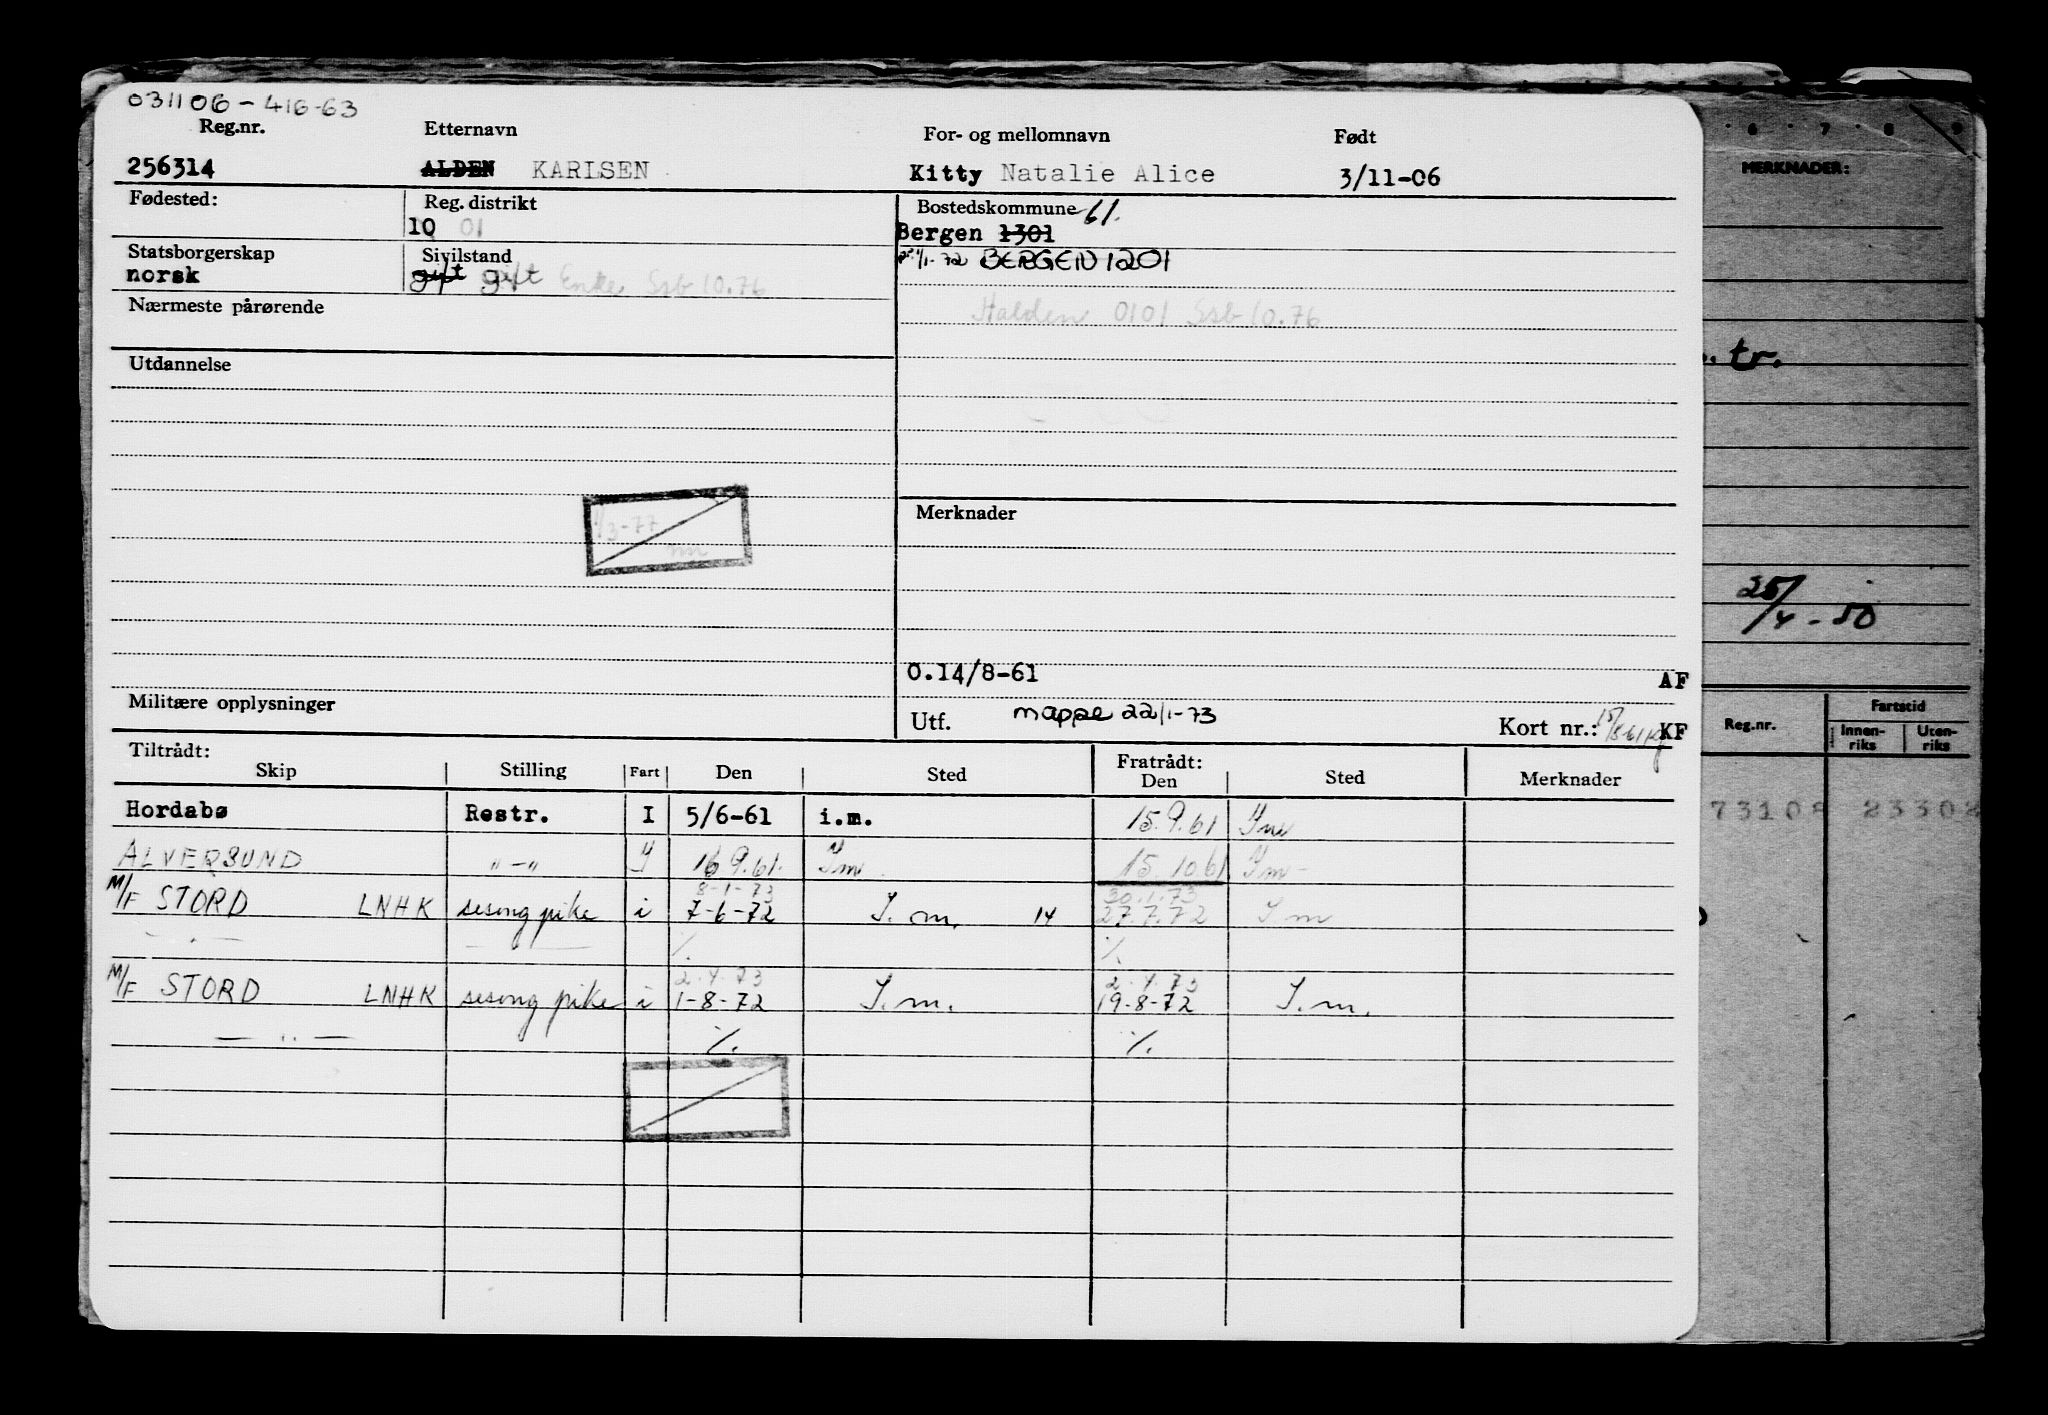 031106-416-63
Reg.nr. Etternavn For- og mellomnavn Født
256314 ALDEN KARLSEN Kitty Natalie Alice 3/11-06
Fødested: Reg. distrikt Bostedskommune 61.
10 01 Bergen 1301
Statsborgerskap Sivilstand 1/1-72 BERGEN 1201
norsk gift gift Enke Ssb 10.76
Nærmeste pårørende Halden 0101 Ssb 10.76
Utdannelse
Merknader
1/3-77
0.14/8-61 AF
Militære opplysninger Utf. mappe 22/1-73 Kort nr.: KF
Tiltrådt: Fratrådt:
Skip Stilling Fart Den Sted Den Sted Merknader
Hordabø Restr. I 5/6-61 i.m. 15.9.61 Im
ALVERSUND "-" I 16.9.61. Im 15.10.61 Im-
8-1-73 30.1.73
M/F STORD LNHK sesong pike i 7-6-72 I.m. 14 27.7.72 I m
— . — ——— ./. ./.
2.4.73 2.4.73
M/F STORD LNHK sesong pike i 1-8-72 I.m. 19-8-72 I.m.
— .. — ./. ./.
6 7 8 9
MERKNADER:
. tr.
25/4-50
Reg.nr. Fartstid
Innen-riks Uten-riks